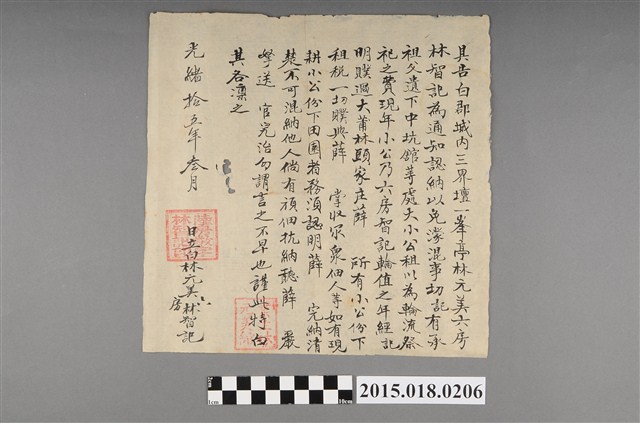 具告白郡城內三界壇一峯亭林元美六房
林智記為通知認納以免濛混事切記有承
祖父遺下中坑舘等處大小公租以為輪流祭
祀之費現年小公乃六房智記輪值之年經記
明贌過大莆林頭家庄薛 所有小公份下
租稅一切贌與薛 掌收眾佃人等如有現
耕小公份下田園者務須認明薛 完納清
楚不可混納他人倘有頑佃抗納聽薛 嚴
拏送 官究治勿謂言之不早也謹此特白
其各凜之
光緒拾五年叁月 日立白林元美六房林智記
2015.018.0206
1cm
10cm